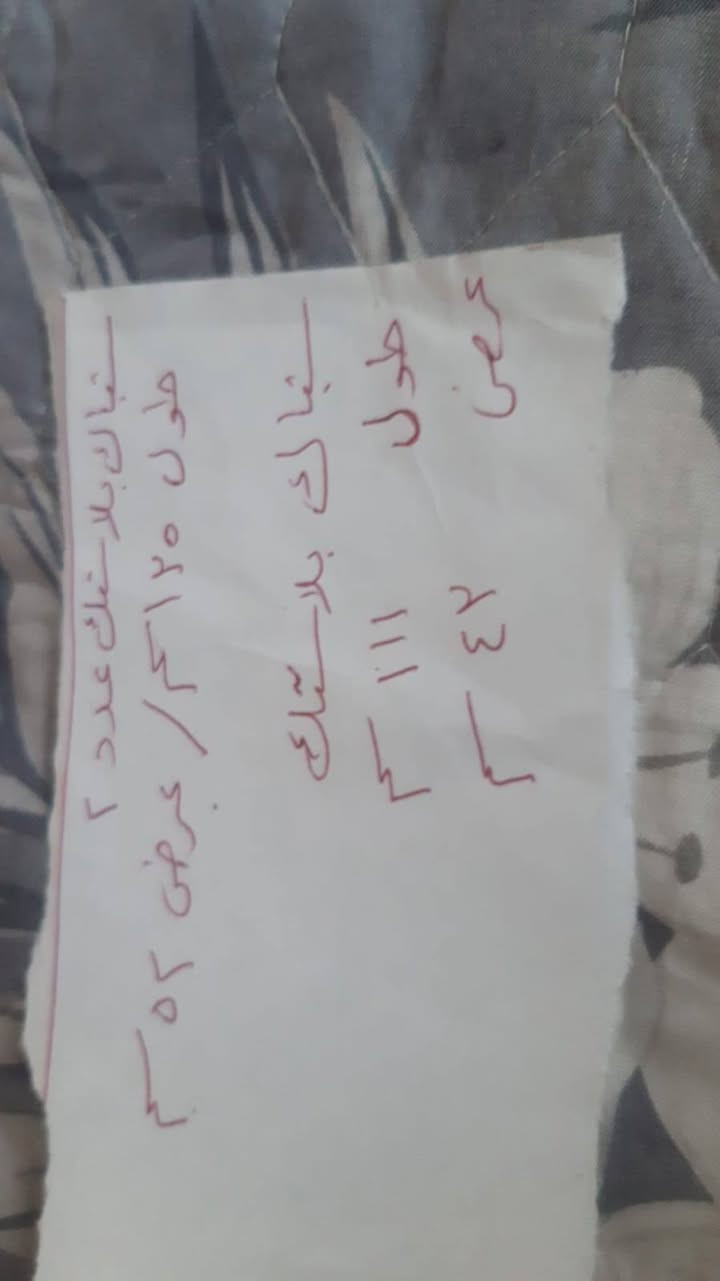 شباك بلاستك عدد ٢
طول ١٣٥ سم / عرض ٥٢ سم
شباك بلاستك
طول ١١١ سم
عرض ٤٣ سم